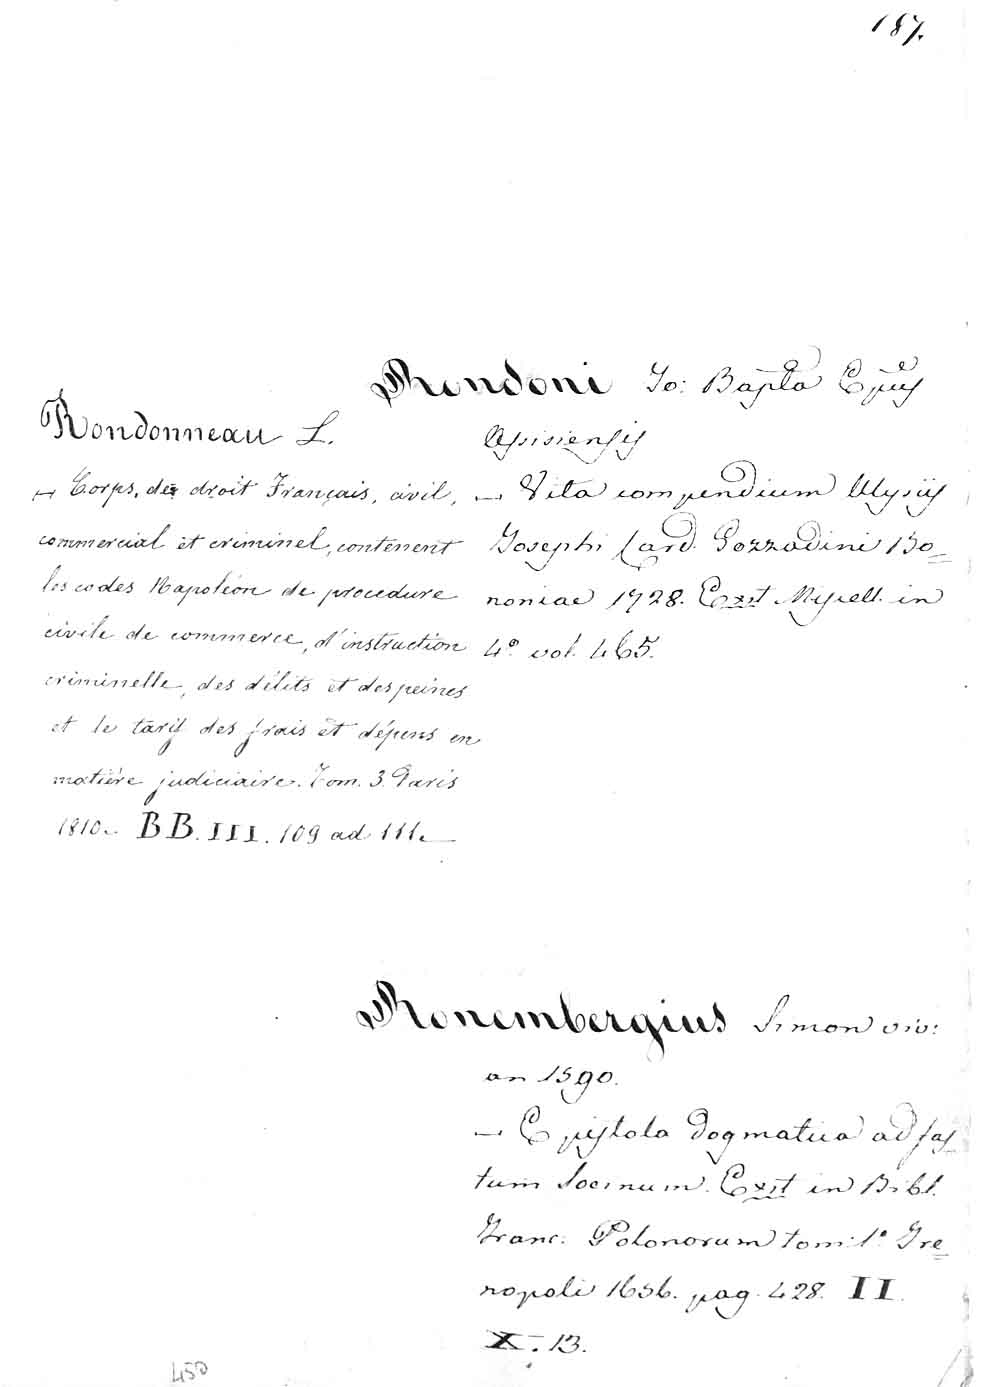 187.
Rondoni Io: Bapta Epus
Assisiensis
— Vita compendium Ulysis
Josephi Card. Gozzadini Bo=
noniae 1728. Exst Miscell. in
4.º vol. 465.
Rondonneau L.
— Corps, de droit Français, civil,
commercial et criminel, contenent
les codes Napoléon de procedure
civile de commerce, d'instruction
criminelle, des délits et des peines
et le tarif des frais et dépens en
matière judiciaire. Tom. 3. Paris
1810. BB. III. 109 ad 111.
Ronembergius Simon viv:
an 1590.
— Epistola dogmatica ad fas=
tum Socinum. Exst in Bibl.
Franc. Polonorum tom: 1º Ire=
nopoli 1656. pag. 428. II.
X. 13.
450